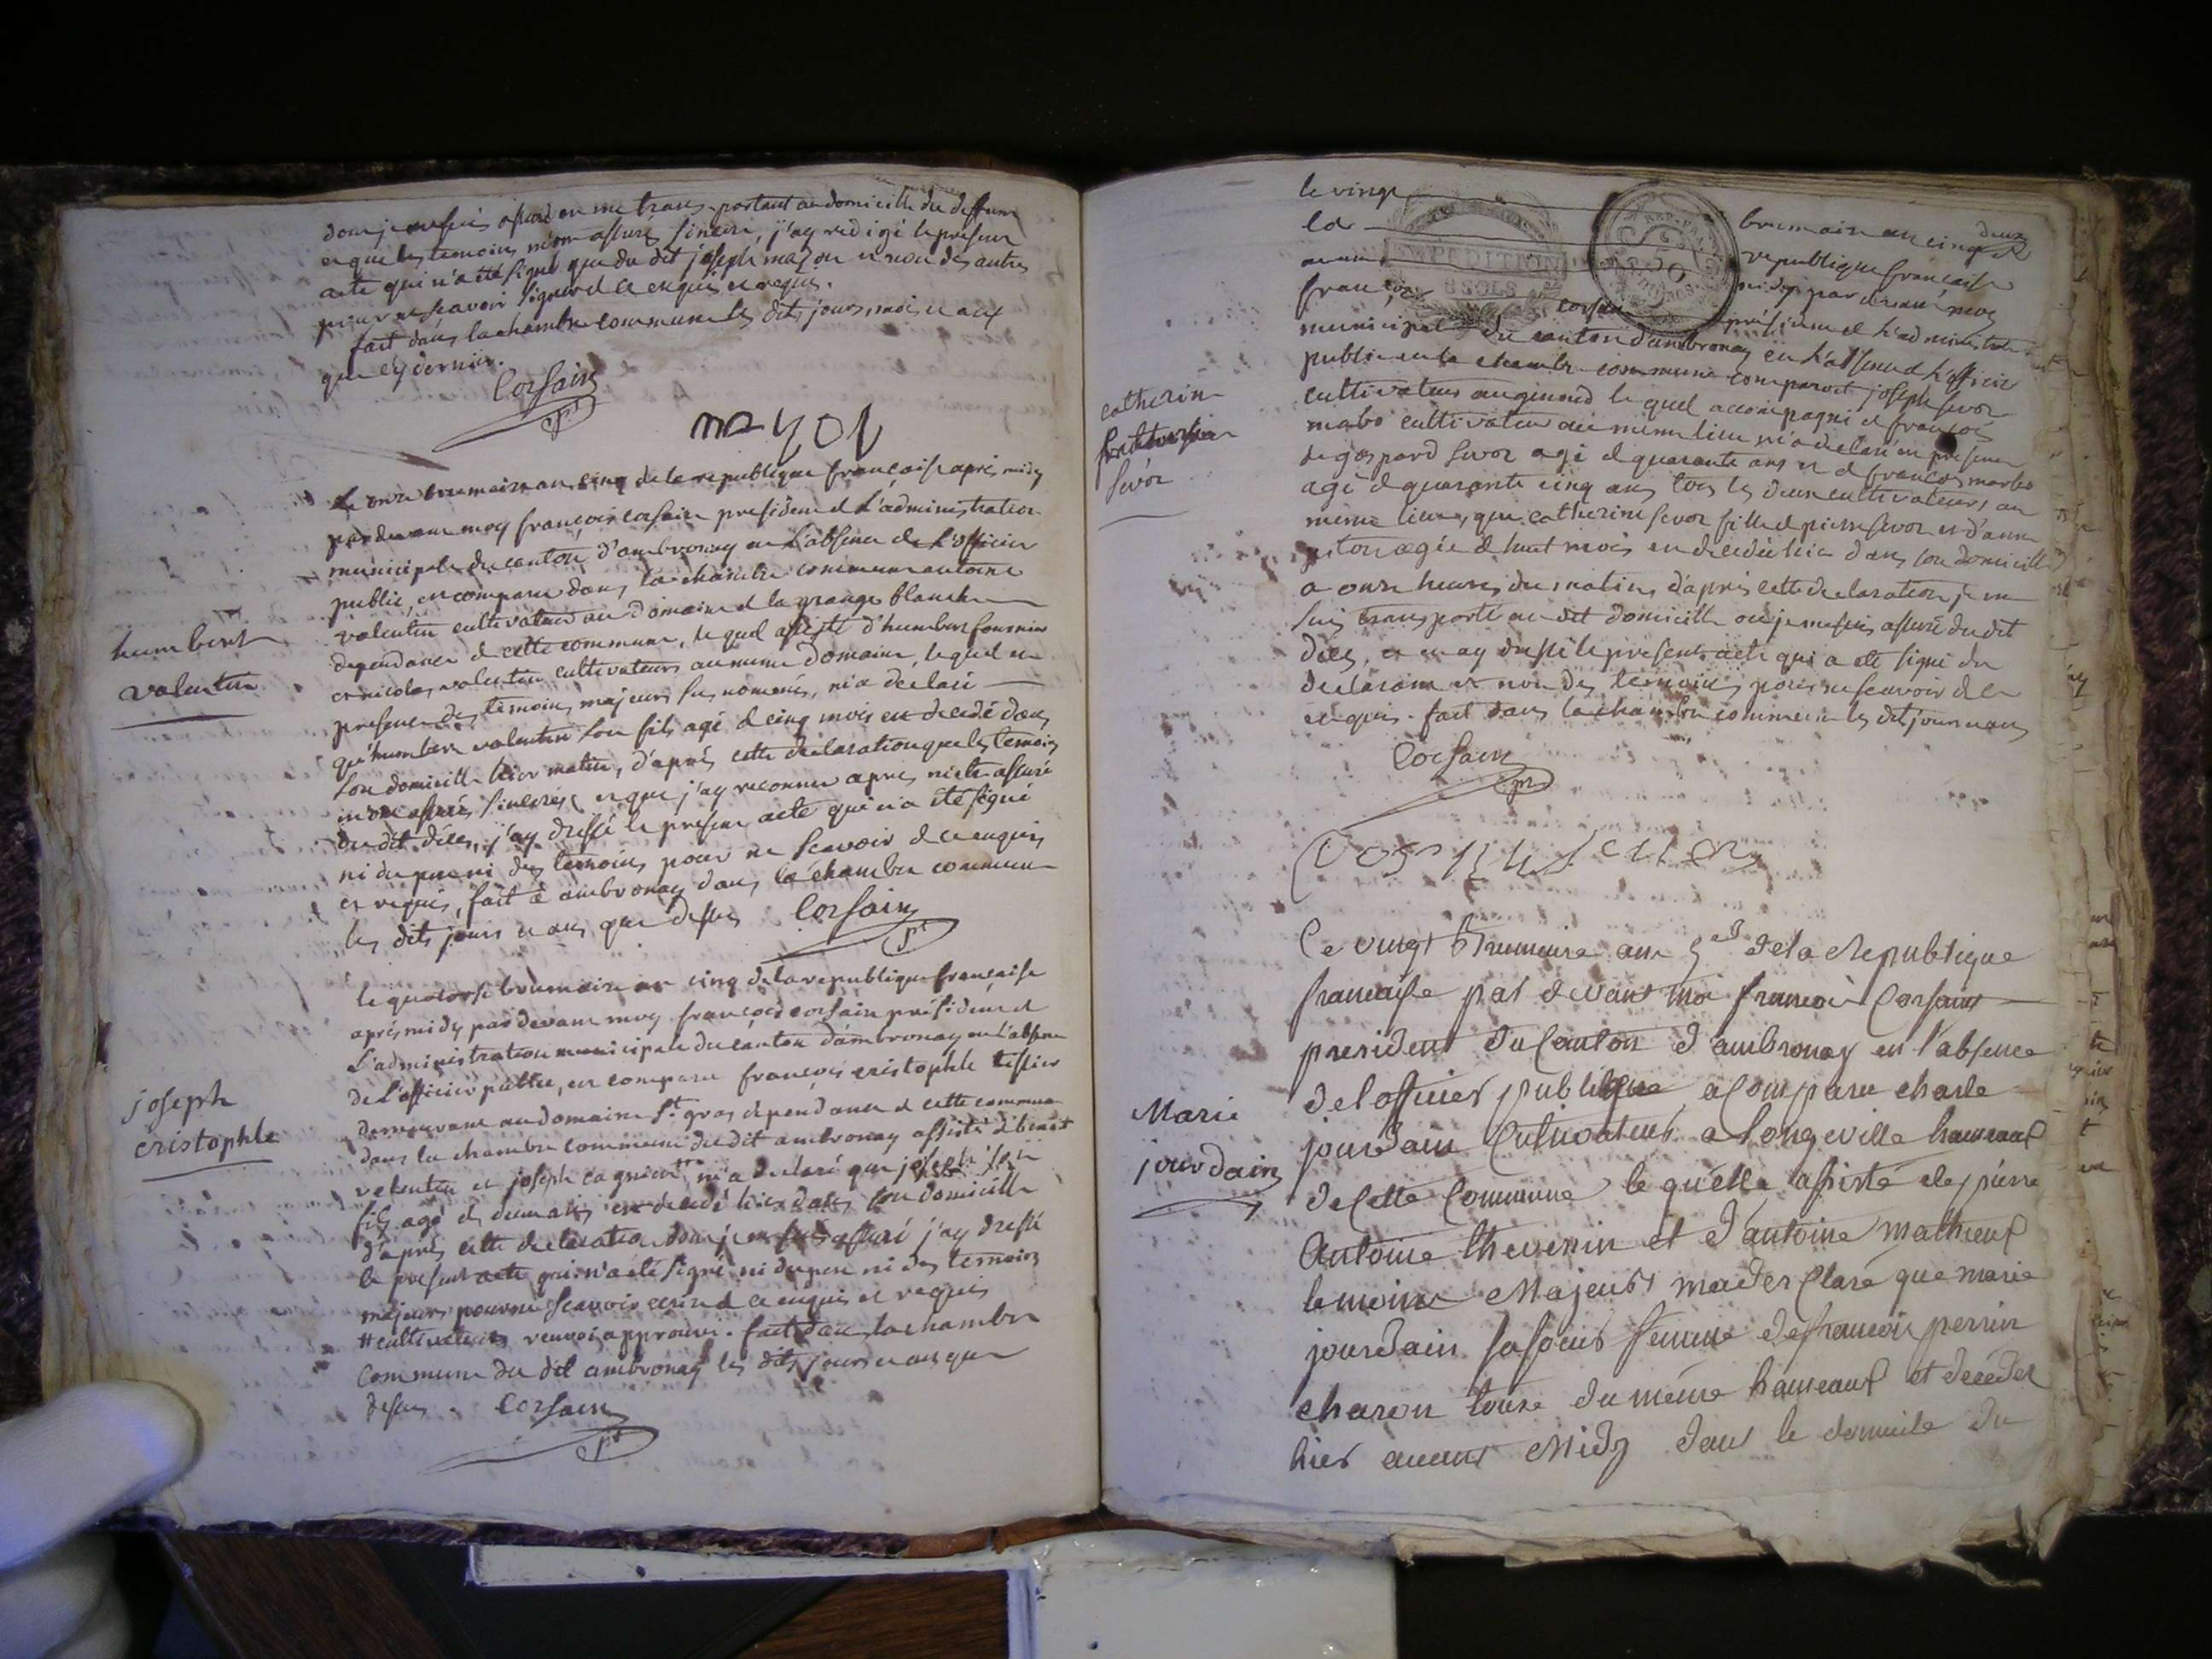 dont je me suis assuré en me transportant au domicille du deffunt
et que les temoins m'ont assuré sincere, j'ay redigé le present
acte qui n'a été signé que du dit joseph mazon et non des autres
pour ne scavoir signer de ce enquis et requis.
fait dans la chambre commune les dits jours, mois et an
que cy dernier.
Corsain
pt
mazon
Le onze brumaire an cinq de la republique francaise après midy
par devant moy françois corsain president de L'administration
municipale du canton d'ambronay en L'absence de L'officier
public, est comparu dans la chambre commune antoine
valentin cultivateur au domaine de la grange blanche
dependance de cette commune, le quel assisté d'humbert fournier
et nicolas valentin cultivateurs au meme domaine, le quel en
presence des temoins majeurs sus nomenés, m'a declaré
qu'humbert valentin son fils agé de cinq mois est decedé dans
son domicille hier matin, d'après cette declaration que les temoins
m'ont assuré sincere, et que j'ay reconnue apres m'etre assuré
du dit déces, j'ay dressé le present acte qui n'a été signé
ni du pere ni des temoins pour ne scavoir de ce enquis
et requis, fait à ambronay dans la chambre commune
les dits jours et an que dessus Corsain
pt
humbert
valentin
le quatorse brumaire an cinq de la republique francaise
après midy pardevant moy françois corsain président de
L'administration municipale du canton d'ambronay en L'absence
de L'officier public, est comparu francois cristophle tissier
demeurant au domaine St gras dependance de cette commune
dans la chambre commune du dit ambronay assisté de benoit
valentin et joseph cagnieur m'a declaré que joseph son
fils agé de deux ans est decedé hier dans son domicille
d'après cette declaration dont je me suis assuré j'ay dressé
le present acte qui n'a été signé ni du pere ni des temoins
majeurs pour ne scavoir ecrire de ce enquis et requis
# cultivateurs renvoi approuvé. fait dans la chambre
commune du dit ambronay les dits jours et an que
dessus. Corsain
pt
joseph
cristophle
le vingt brumaire an cinq deux
de la republique francaise
midy par devant moy
françois corsain président de L'administration
municipale du canton d'ambronay en L'absence de L'officier
public en la chambre commune comparoit joseph sevoz
cultivateur au genoud le quel accompagné de francois
marbo cultivateur au meme lieu m'a declaré en presence
de gaspard sevoz agé de quarante ans et de francois marbo
agé de quarante cinq ans tous les deux cultivateurs au
meme lieu, que catherine sevoz fille de pierre sevoz et d'anne
piton agée de huit mois est decedée hier dans son domicille
a onze heures du matin, d'après cette declaration je me
suis transporté au dit domicille ou je me suis assuré du dit
déces, et en ay dressé le present acte qui a été signé du
declarant et non des temoins pour ne scavoir de ce
enquis. fait dans la chambre commune les dit jour et an
Corsain
pt
catherine
sevoz
Ce vingt Brumaire an 5 de la Republique
francaise par devant moi francoi Corsain
president du Canton d'ambronay en l'absence
de lofficier publique a Comparu charle
jourdain Cultivateur a Longeville hameau
de cette Commune le quelle assisté de pierre
Antoine thevenin et d'antoine mathieu
lemoine Majeurs ma der Claré que marie
jourdain sa soeur femme de francoi perrin
charon tous du même hameau et deceder
hier avant Midy dans le domicile du
Marie
jourdain